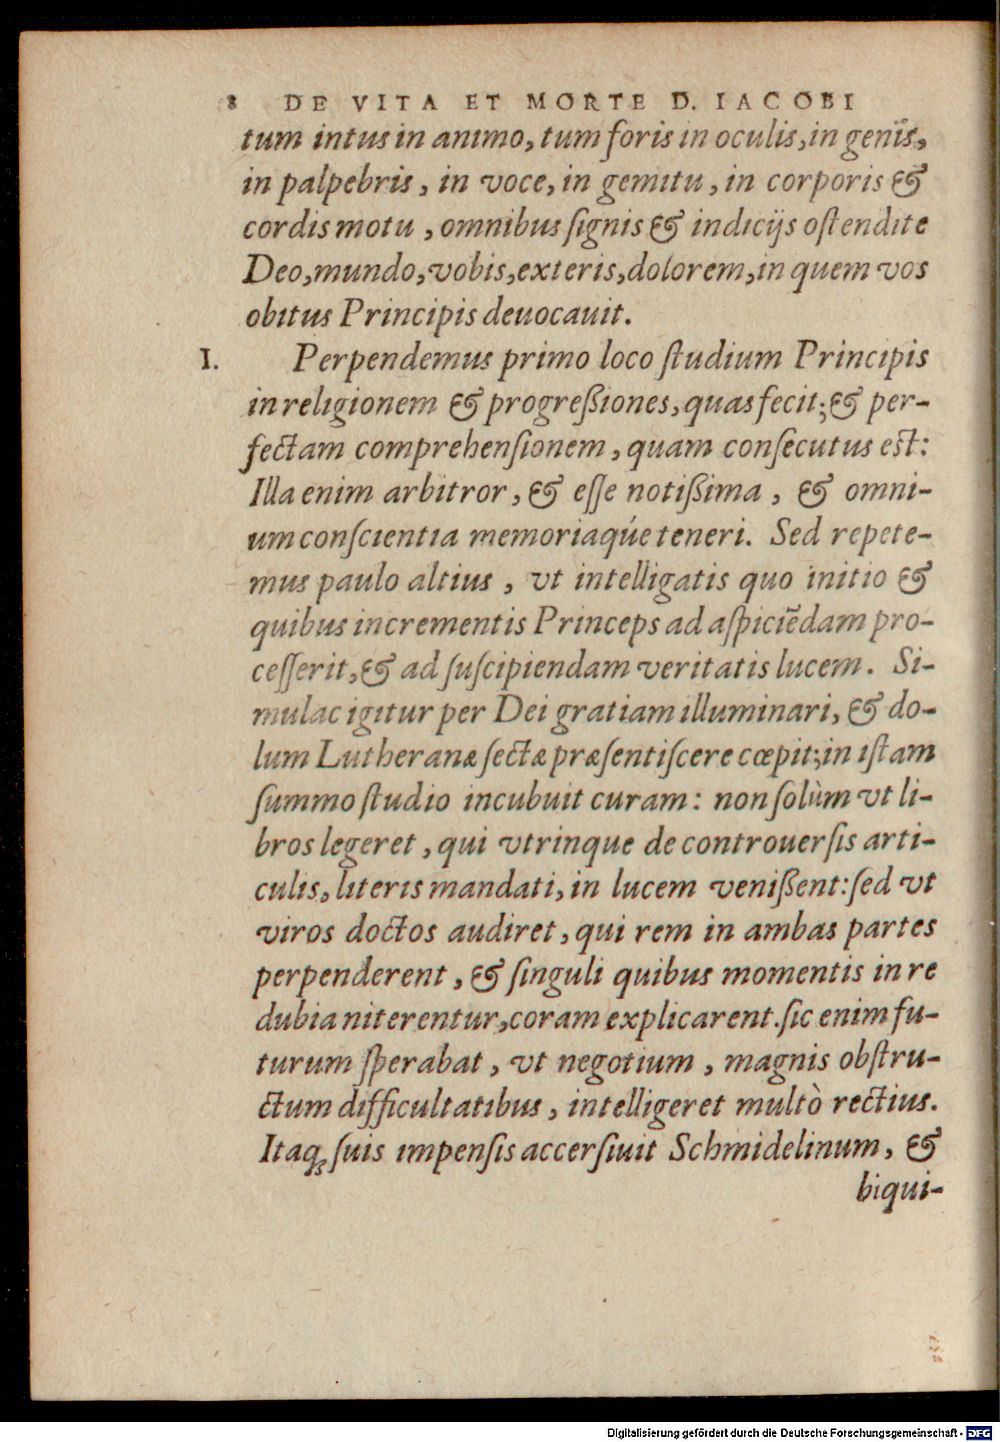 8 DE VITA ET MORTE D. IACOBI
tum intus in animo, tum foris in oculis, in genis,
in palpebris, in voce, in gemitu, in corporis &
cordis motu, omnibus ſignis & indicijs oſtendite
Deo, mundo, vobis, exteris, dolorem, in quem vos
obitus Principis deuocauit.
I. Perpendemus primo loco ſtudium Principis
in religionem & progreßiones, quas fecit; & per-
fectam comprehenſionem, quam conſecutus est:
Illa enim arbitror, & eſſe notißima, & omni-
um conſcientia memoriaqúe teneri. Sed repete-
mus paulo altius, vt intelligatis quo initio &
quibus incrementis Princeps ad aſpiciẽdam pro-
ceſſerit, & ad ſuſcipiendam veritatis lucem. Si-
mulac igitur per Dei gratiam illuminari, & do-
lum Lutheranæ ſectæ præſentiſcere cœpit; in iſtam
ſummo ſtudio incubuit curam: non ſolùm vt li-
bros legeret, qui vtrinque de controuerſis arti-
culis, literis mandati, in lucem venißent: ſed vt
viros doctos audiret, qui rem in ambas partes
perpenderent, & ſinguli quibus momentis in re
dubia niterentur, coram explicarent. ſic enim fu-
turum ſperabat, vt negotium, magnis obſtru-
ctum difficultatibus, intelligeret multò rectius.
Itaq; ſuis impenſis accerſiuit Schmidelinum, &
biqui-
Digitalisierung gefördert durch die Deutsche Forschungsgemeinschaft - DFG